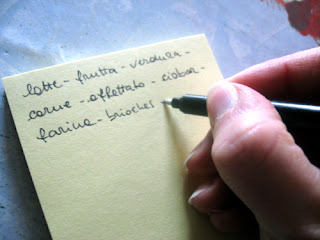 latte - frutta - verdura -
carne - affettato - ciobar -
farina - brioches